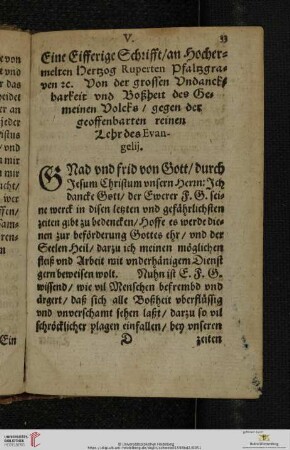 V.
33
Eine Eifferige Schrifft/an Hocher-
melten Hertzog Ruperten Pfaltzgra-
ven ꝛc. Von der grossen Vndanck-
barkeit vnd Boßheit des Ge-
meinen Volcks/gegen der
geoffenbarten reinen
Lehr des Evan-
gelij.
GNad vnd frid von Gott/durch
Jesum Christum vnsern Herrn: Jch
dancke Gott/der Ewerer F. G. sei-
ne werck in disen letzten vnd gefährlichsten
zeiten gibt zu bedencken/Hoffe es werde die-
nen zur beförderung Gottes ehr/vnd der
Seelen Heil/darzu ich meinen möglichen
fleiß vnd Arbeit mit vnderhänigem Dienst
gern beweisen wolt. Nuhn ist E. F. G.
wissend/wie vil Menschen befrembd vnd
ärgert/daß sich alle Boßheit vberflüssig
vnd vnverschamt sehen laßt/darzu so vil
schröcklicher plagen einfallen/bey vnseren
D zeiten
Ein